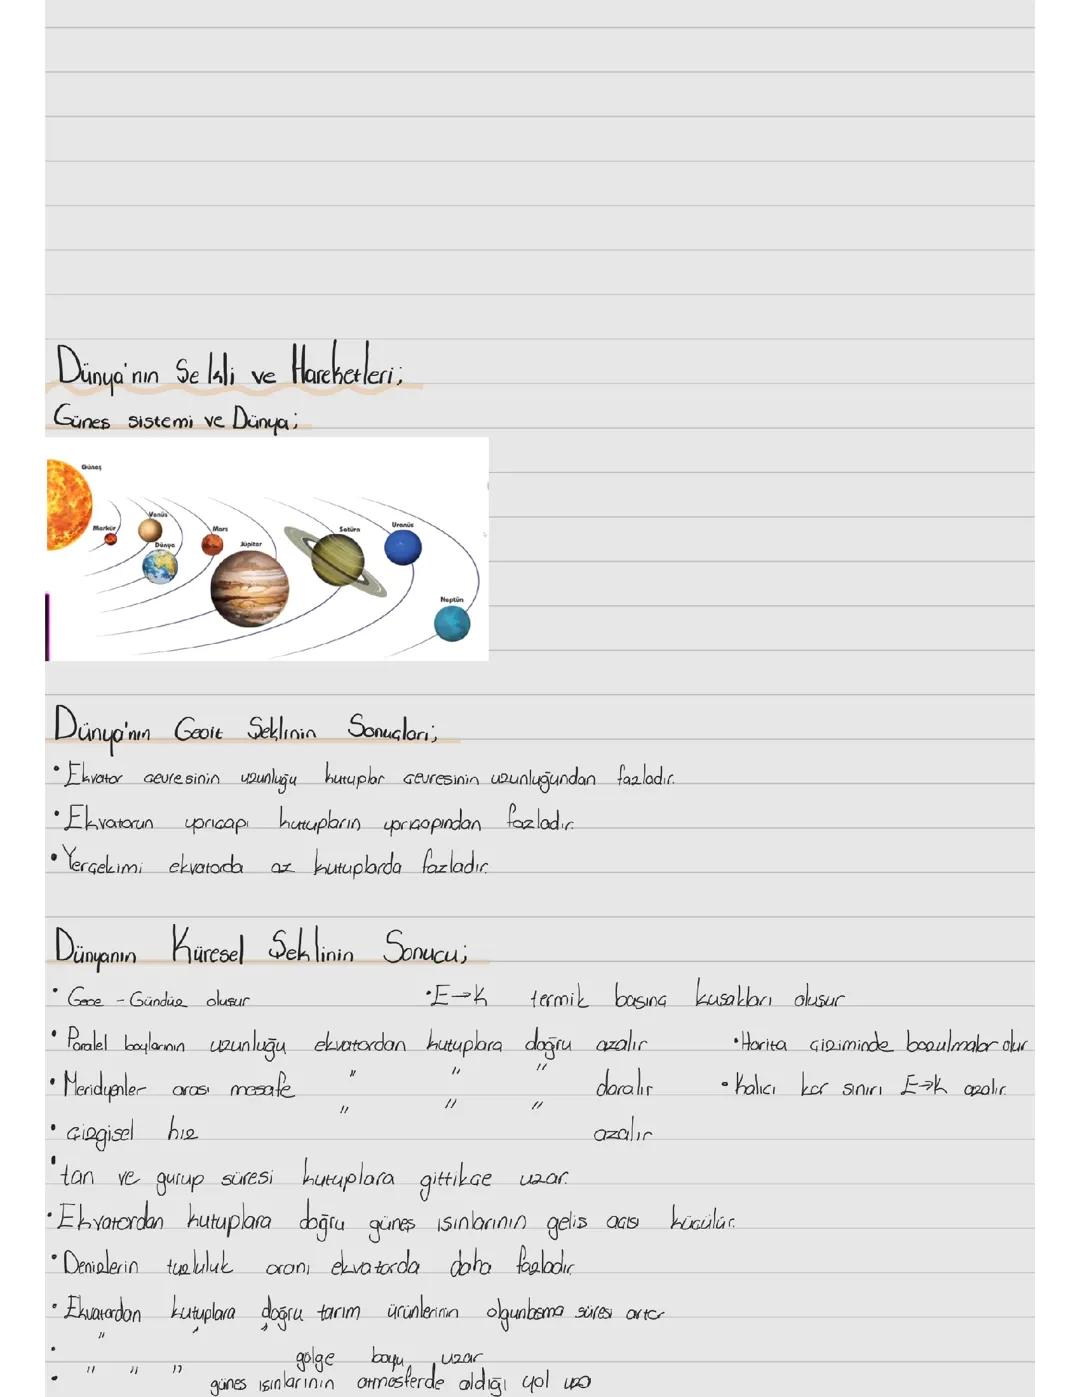 Dünya'nın Şekli ve Hareketleri;
Güneş sistemi ve Dünya;
Güneş
Merkür
Venüs
Dünya
Mars
Jüpiter
Satürn
Uranüs
Neptün
Dünya'nın Geoit Şeklinin Sonuçları;
• Ekvator çevresinin uzunluğu kutuplar çevresinin uzunluğundan fazladır.
• Ekvatorun yarıçapı kutupların yarıçapından fazladır.
• Yerçekimi ekvatorda az kutuplarda fazladır.
Dünyanın Küresel Şeklinin Sonucu;
• Gece - Gündüz oluşur •E→K termik basınç kuşakları oluşur
• Paralel boylarının uzunluğu ekvatordan kutuplara doğru azalır •Harita çiziminde bozulmalar olur
• Meridyenler arası mesafe " " " daralır • kalıcı kar sınırı E→K azalır.
• çizgisel hız " " " azalır
• tan ve gurup süresi kutuplara gittikçe uzar.
• Ekvatordan kutuplara doğru güneş ışınlarının geliş açısı küçülür.
• Denizlerin tuzluluk oranı ekvatorda daha fazladır.
• Ekvatordan kutuplara doğru tarım ürünlerinin olgunlaşma süresi artar
• " " " gölge boyu uzar
• " " " güneş ışınlarının atmosferde aldığı yol uza